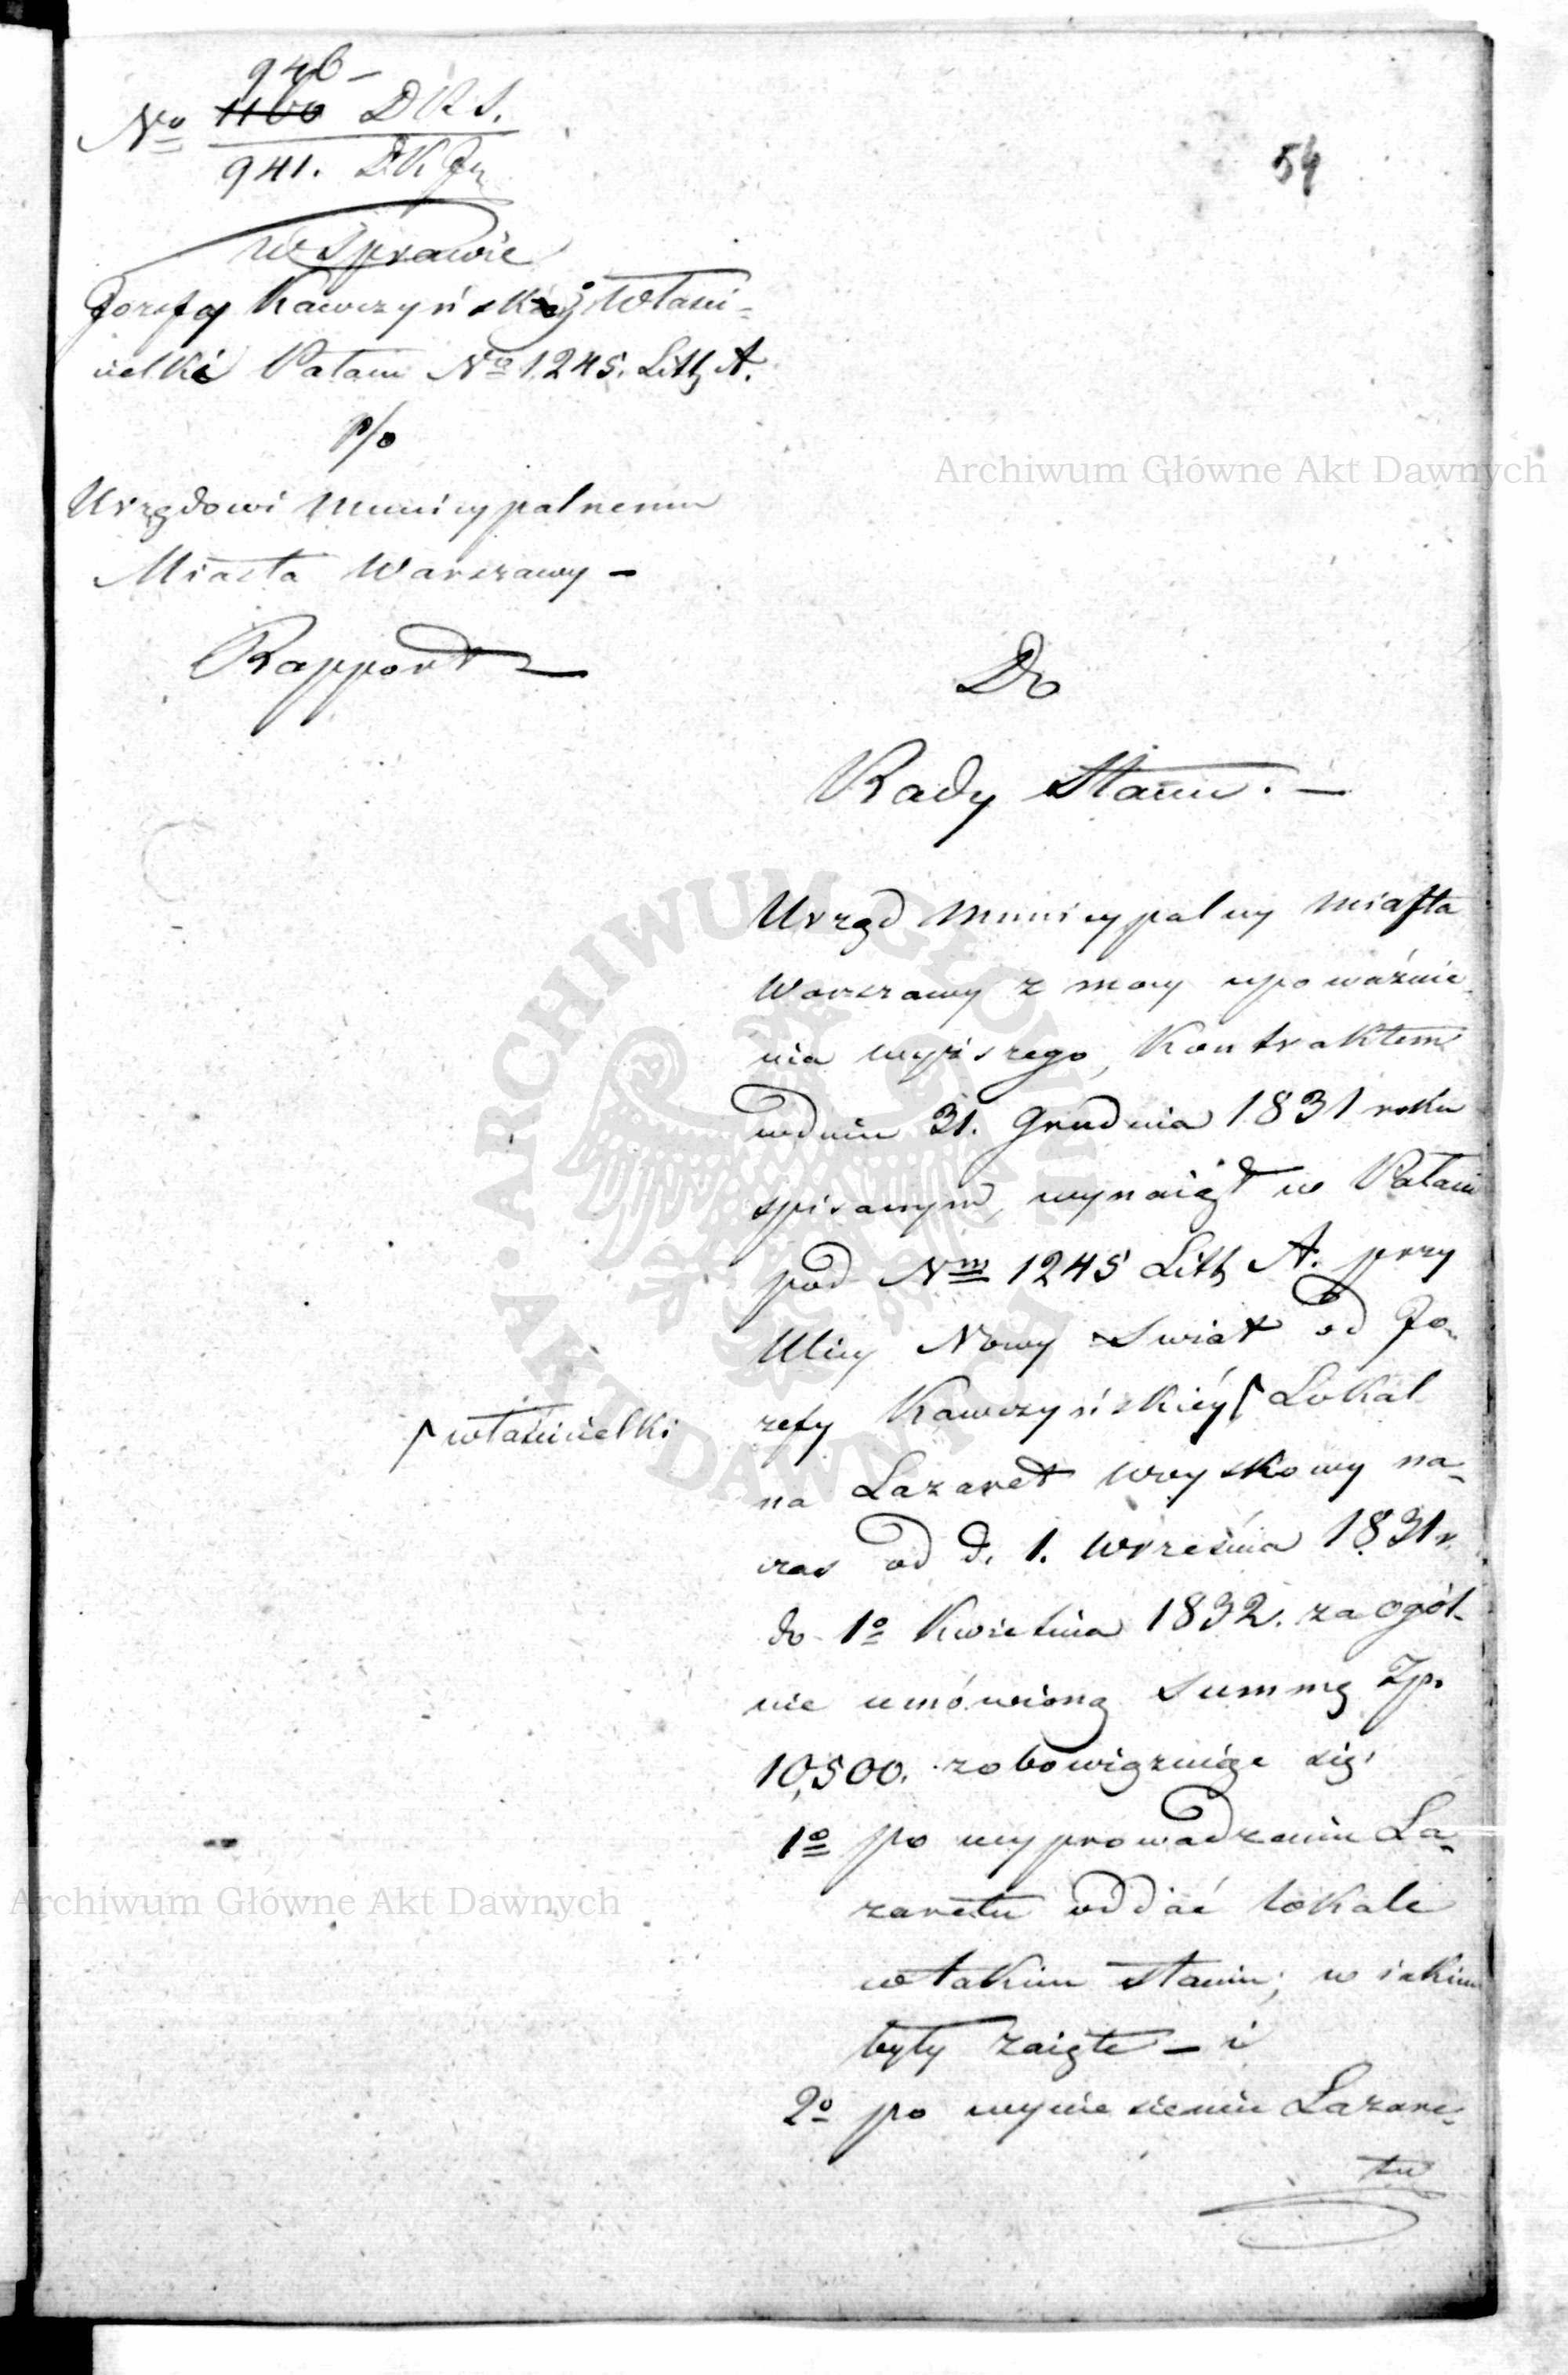 946 –
No 1160 D R S.
941. D K Gn
w Sprawie
Jozefy Kawczyńskiéj Właści-
cielki Pałacu No 1245. Litt. A.
p/o
Urzędowi Municypalnemu
Miasta Warszawy –
Rapport
54
Do
Rady Stanu. –
Urząd Municypalny Miasta
Warszawy z mocy upoważnie-
nia wyższego, Kontraktem
w dniu 31. Grudnia 1831 roku
spisanym, wynaiął w Pałacu
pod Nrm 1245 Litt. A. przy
Ulicy Nowy Swiat od Jo-
zefy Kawczyńskiéy ſ Lokal
ſ właścicielki
na Lazaret woyskowy na-
czas od d. 1. Września 1831 r.
do 1o Kwietnia 1832. za ogól-
nie umówioną Summę Zp.
10,500. zobowiązuiąc się,
1o po wyprowadzeniu La-
zaretu oddać lokale
w takim stanie, w iakim
były zaięte – i
2o po wyniesieniu Lazare-
tu
Archiwum Główne Akt Dawnych
Archiwum Główne Akt Dawnych
ARCHIWUM GŁÓWNE AKT DAWNYCH